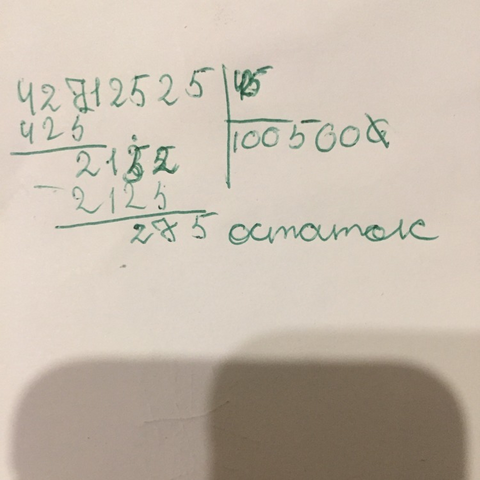 42712525 425
425 100500
2132
2125
275 остаток